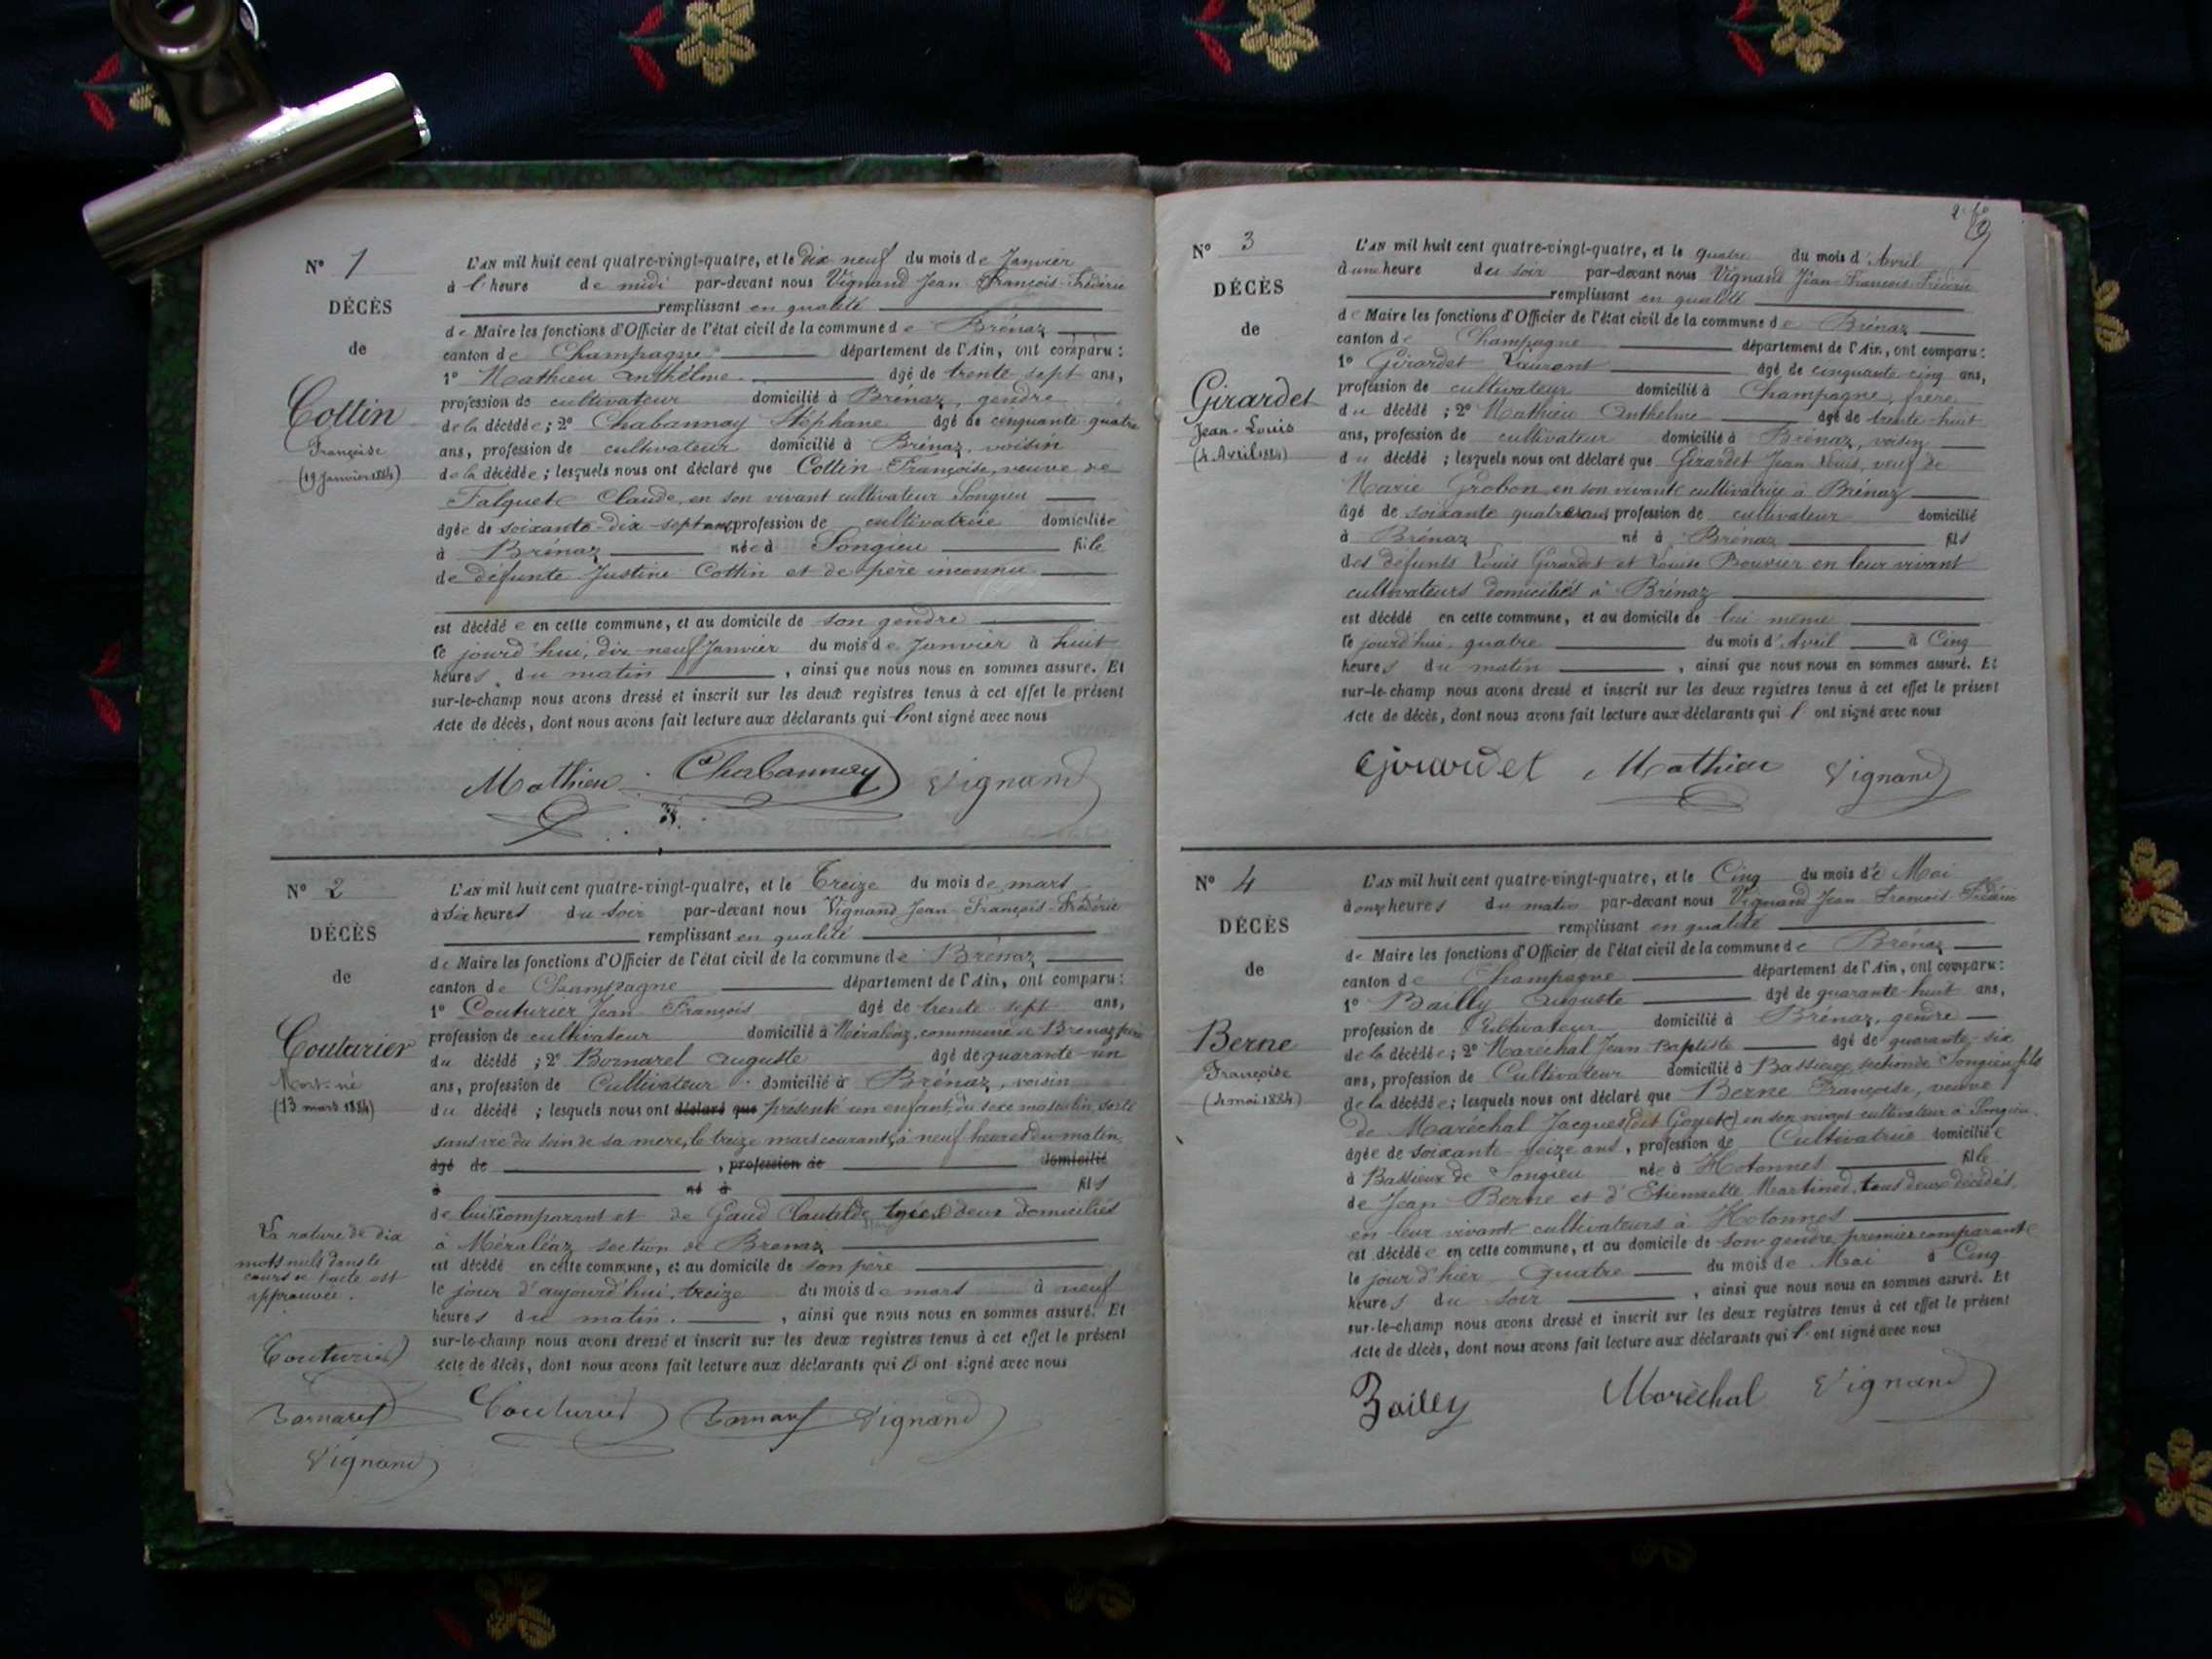 N° 1
DÉCÈS
de
Cottin
Françoise
(19 Janvier 1884)
L'AN mil huit cent quatre-vingt-quatre, et le dix neuf du mois de Janvier
à l'heure de midi par-devant nous Vignand Jean François-Frédéric
remplissant en qualité
de Maire les fonctions d'Officier de l'état civil de la commune de Brénaz
canton de Champagne département de l'Ain, ont comparu :
1° Mathieu Anthelme âgé de trente sept ans,
profession de cultivateur domicilié à Brénaz, gendre
de la décédée ; 2° Chabannay Stéphane âgé de cinquante-quatre
ans, profession de cultivateur domicilié à Brénaz, voisin
de la décédée ; lesquels nous ont déclaré que Cottin Françoise, veuve de
Falquet Claude, en son vivant cultivateur Songieu
âgée de soixante-dix-sept ans, profession de cultivatrice domiciliée
à Brénaz née à Songieu fille
de défunte Justine Cottin et de père inconnu
est décédée en cette commune, et au domicile de son gendre
le jourd'hui, dix neuf Janvier du mois de Janvier à huit
heures du matin , ainsi que nous nous en sommes assuré. Et
sur-le-champ nous avons dressé et inscrit sur les deux registres tenus à cet effet le présent
Acte de décès, dont nous avons fait lecture aux déclarants qui l'ont signé avec nous
Mathieu Chabannay Vignand
N° 2
DÉCÈS
de
Couturier
Mort-né
(13 mars 1884)
L'AN mil huit cent quatre-vingt-quatre, et le Treize du mois de mars
à six heures du soir par-devant nous Vignand Jean François-Frédéric
remplissant en qualité
de Maire les fonctions d'Officier de l'état civil de la commune de Brénaz
canton de Champagne département de l'Ain, ont comparu :
1° Couturier Jean François âgé de trente sept ans,
profession de cultivateur domicilié à Méraléaz, commune de Brénaz père
du décédé ; 2° Bornarel Auguste âgé de quarante-un
ans, profession de Cultivateur domicilié à Brénaz, voisin
du décédé ; lesquels nous ont déclaré que présenté un enfant du sexe masculin, sorti
sans vie du sein de sa mère, le treize mars courant, à neuf heures du matin,
âgé de , profession de domicilié
à né à fils
de lui comparant et de Gaud Clautilde tous deux domiciliés
à Méraléaz section de Brenaz
est décédé en cette commune, et au domicile de son père
le jour d'aujourd'hui, treize du mois de mars à neuf
heures du matin. , ainsi que nous nous en sommes assuré. Et
sur-le-champ nous avons dressé et inscrit sur les deux registres tenus à cet effet le présent
Acte de décès, dont nous avons fait lecture aux déclarants qui l'ont signé avec nous
La rature de dix
mots nuls dans le
cours de l'acte est
approuvée.
Couturier
Bornarel
Vignand
Couturier Bornarel Vignand
N° 3
DÉCÈS
de
Girardet
Jean-Louis
(4 Avril 1884)
L'AN mil huit cent quatre-vingt-quatre, et le quatre du mois d'Avril
à une heure du soir par-devant nous Vignand Jean-François-Frédéric
remplissant en qualité
de Maire les fonctions d'Officier de l'état civil de la commune de Brénaz
canton de Champagne département de l'Ain, ont comparu :
1° Girardet Laurent âgé de cinquante cinq ans,
profession de cultivateur domicilié à Champagne, frère
du décédé ; 2° Mathieu Anthelme âgé de trente-huit
ans, profession de cultivateur domicilié à Brénaz, voisin
du décédé ; lesquels nous ont déclaré que Girardet Jean Louis, veuf de
Marie Grobon en son vivant cultivatrice à Brénaz
âgé de soixante quatre ans, profession de cultivateur domicilié
à Brénaz né à Brénaz fils
des défunts Louis Girardet et Louise Bouvier en leur vivant
cultivateurs domiciliés à Brénaz
est décédé en cette commune, et au domicile de lui même
le jourd'hui, quatre du mois d'Avril à Cinq
heures du matin , ainsi que nous nous en sommes assuré. Et
sur-le-champ nous avons dressé et inscrit sur les deux registres tenus à cet effet le présent
Acte de décès, dont nous avons fait lecture aux déclarants qui l'ont signé avec nous
Girardet Mathieu Vignand
N° 4
DÉCÈS
de
Berne
Françoise
(4 mai 1884)
L'AN mil huit cent quatre-vingt-quatre, et le Cinq du mois de Mai
à onze heures du matin par-devant nous Vignand Jean-François-Frédéric
remplissant en qualité
de Maire les fonctions d'Officier de l'état civil de la commune de Brénaz
canton de Champagne département de l'Ain, ont comparu :
1° Bailly Auguste âgé de quarante-huit ans,
profession de Cultivateur domicilié à Brénaz, gendre
de la décédée ; 2° Maréchal Jean-Baptiste âgé de quarante-six
ans, profession de Cultivateur domicilié à Bassieux, section de Songieu, fils
de la décédée ; lesquels nous ont déclaré que Berne Françoise, veuve
de Maréchal Jacques (dit Goyet) en son vivant cultivateur à Songieu.
âgée de soixante-seize ans, profession de Cultivatrice domiciliée
à Bassieux de Songieu née à Hotonnes fille
de Jean Berne et d'Etiennette Martinod, tous deux décédés,
en leur vivant cultivateurs à Hotonnes
est décédée en cette commune, et au domicile de son gendre premier comparant
le jour d'hier quatre du mois de Mai à Cinq
heures du soir , ainsi que nous nous en sommes assuré. Et
sur-le-champ nous avons dressé et inscrit sur les deux registres tenus à cet effet le présent
Acte de décès, dont nous avons fait lecture aux déclarants qui l'ont signé avec nous
Bailly Maréchal Vignand